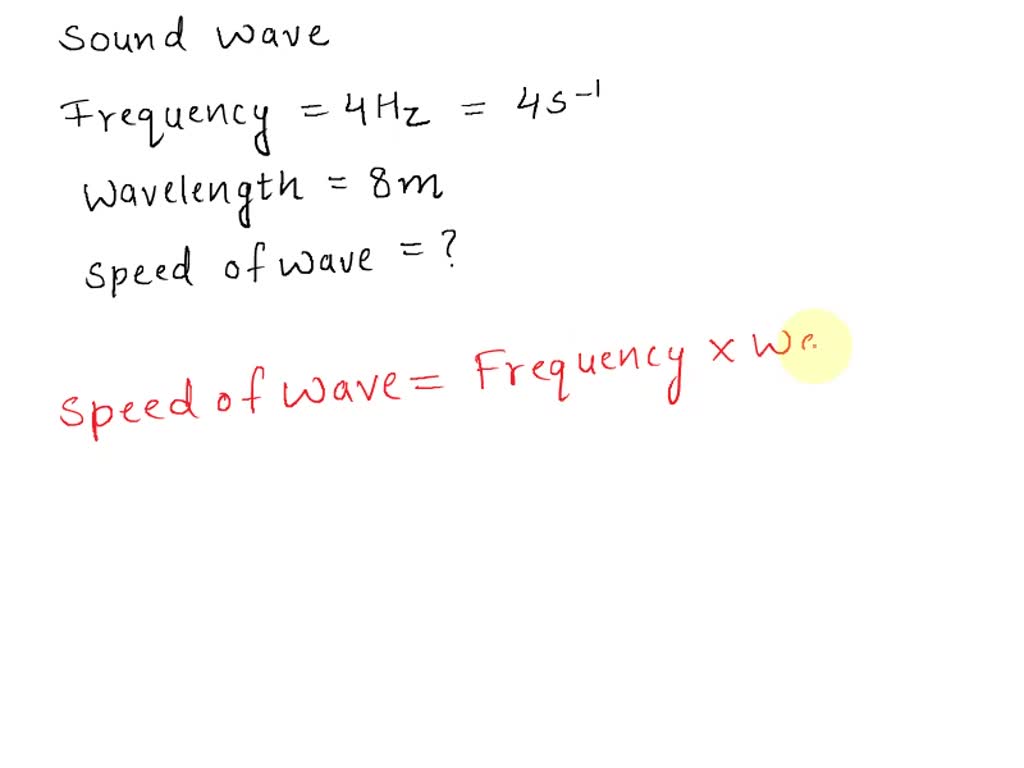 Sound wave
Frequency = 4Hz = 4s⁻¹
Wavelength = 8m
speed of wave = ?
speed of wave = Frequency ×